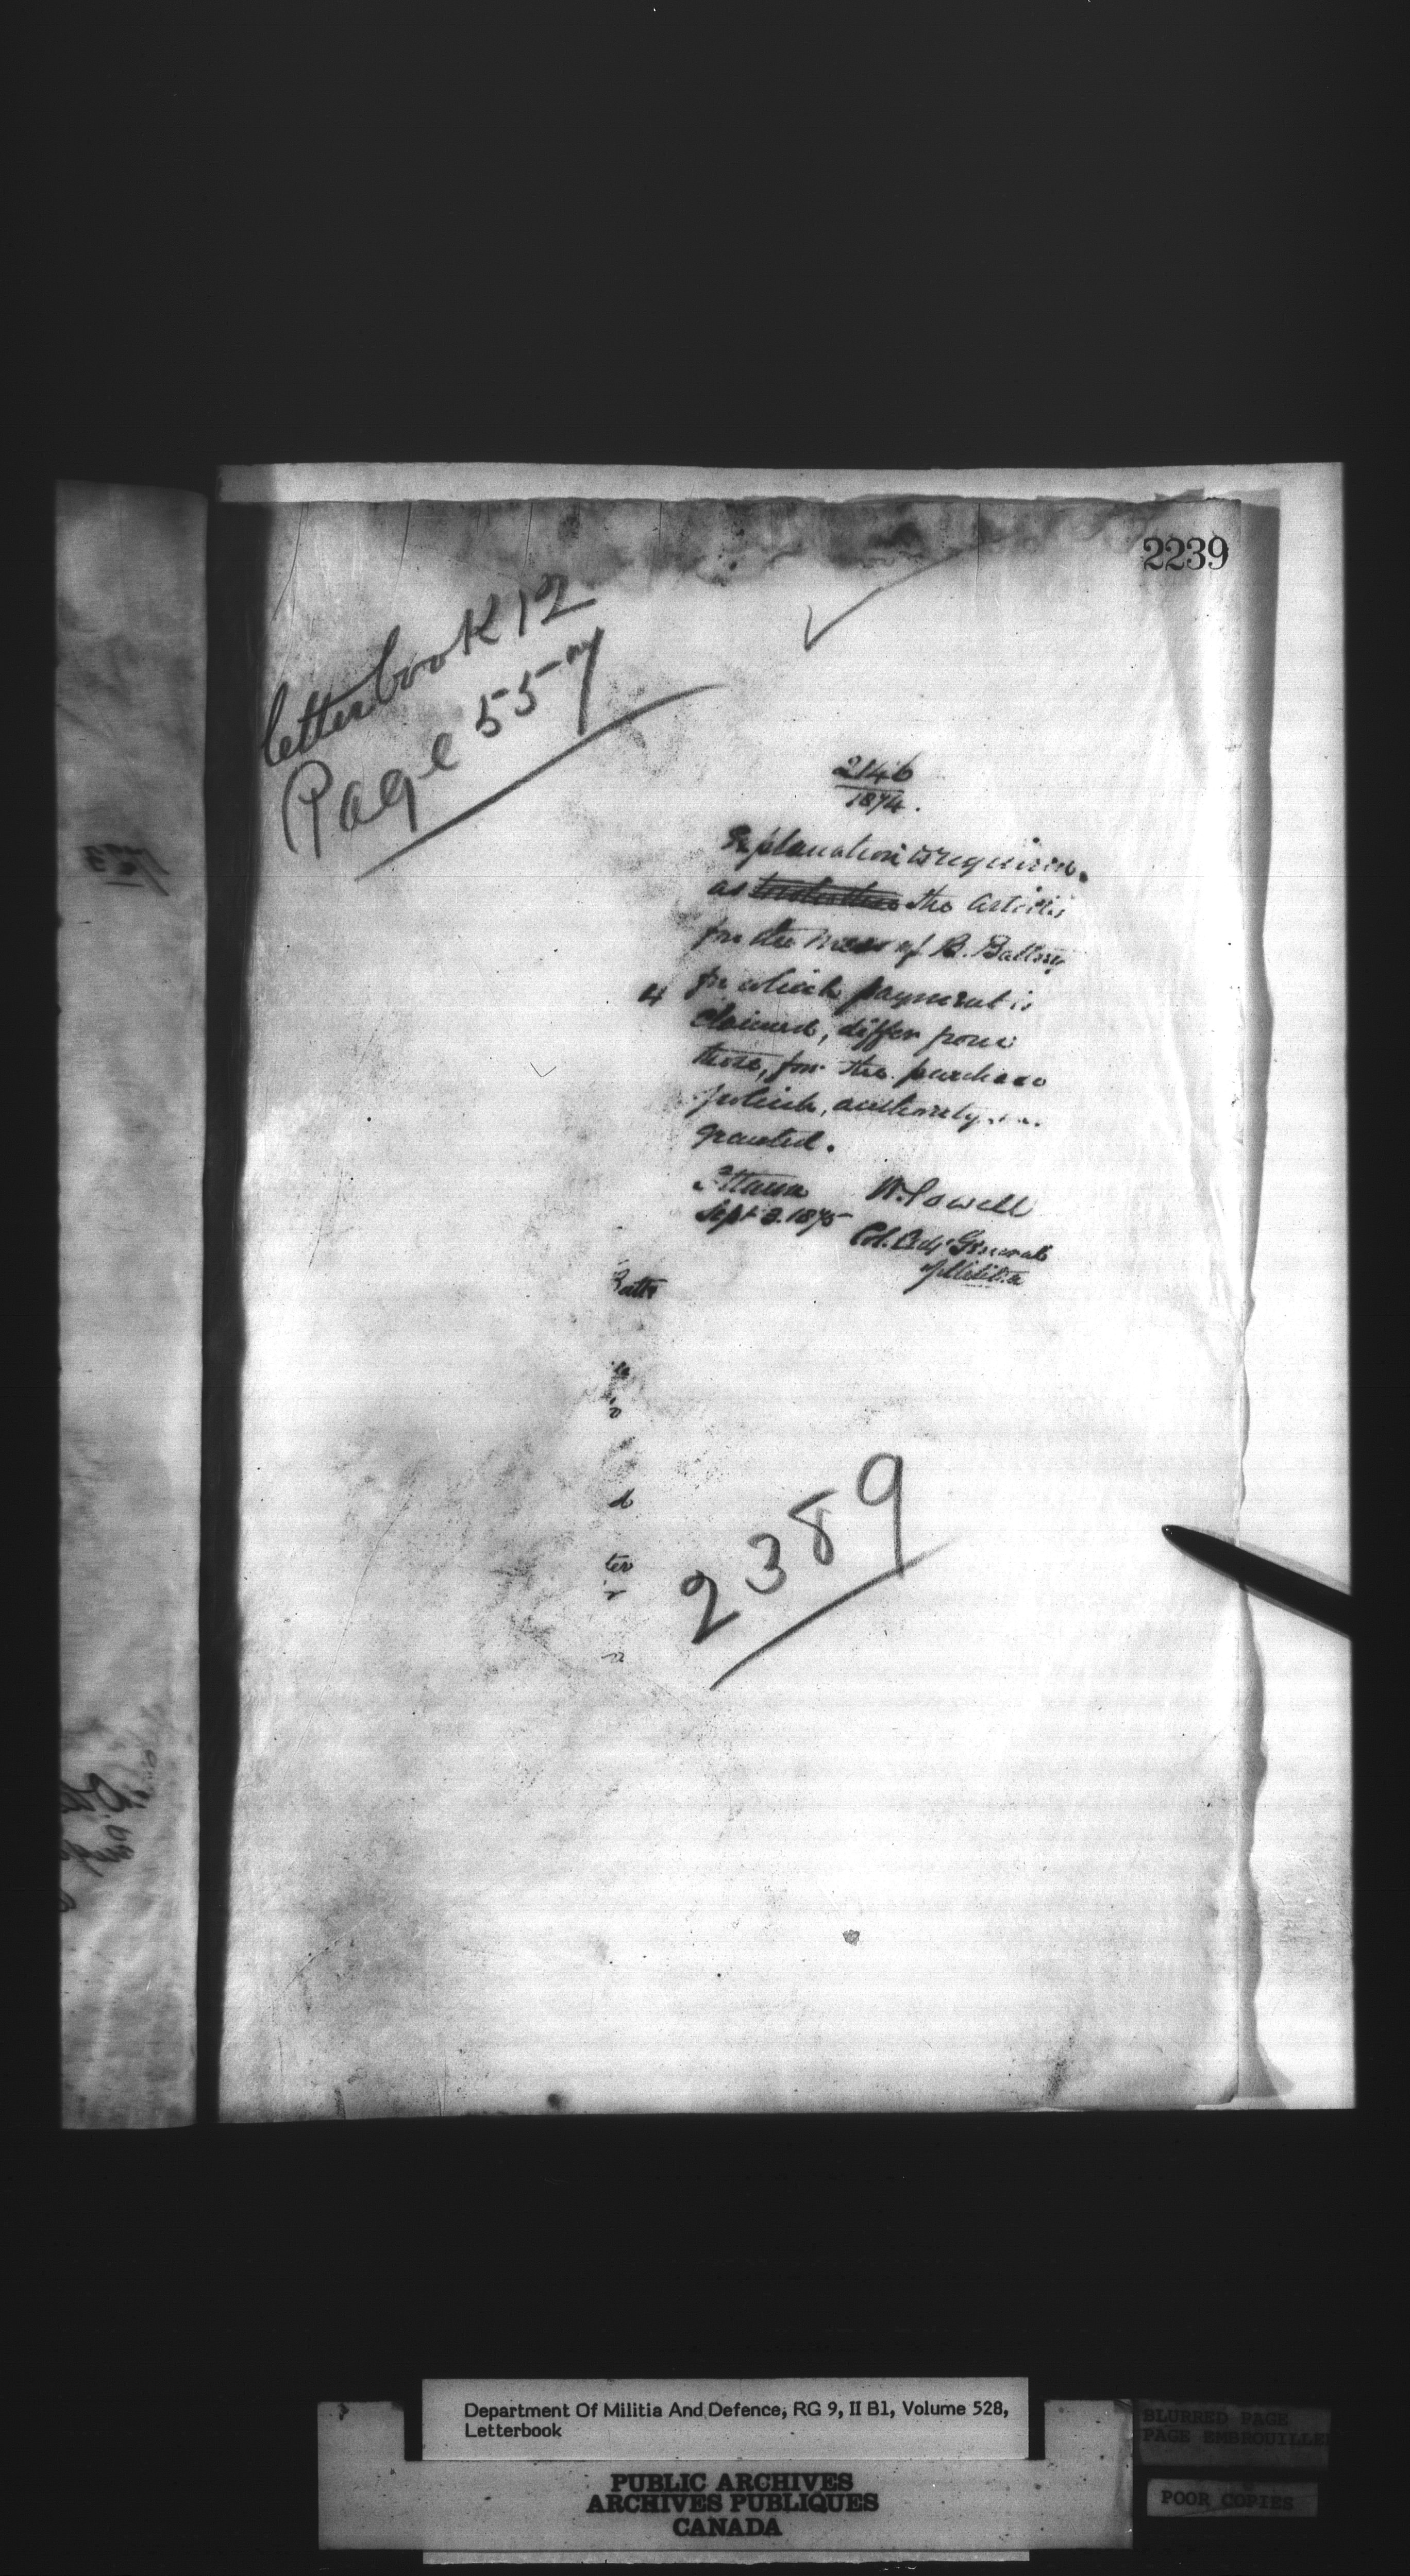 2239
letterbook 12
Page 557
2146
1874.
Explanation is required
as the articles
for the mess of B. Battery
4 for which payment is
claimed, differ from
those, for the purchase
which, authority
granted.
Ottawa W. Powell
Sept 3. 1875
Col. Adj. General
of Militia
Batty
d
ter
2389
Department Of Militia And Defence, RG 9, II B1, Volume 528,
Letterbook
PUBLIC ARCHIVES
ARCHIVES PUBLIQUES
CANADA
BLURRED PAGE
PAGE EMBROUILLE
POOR COPIES